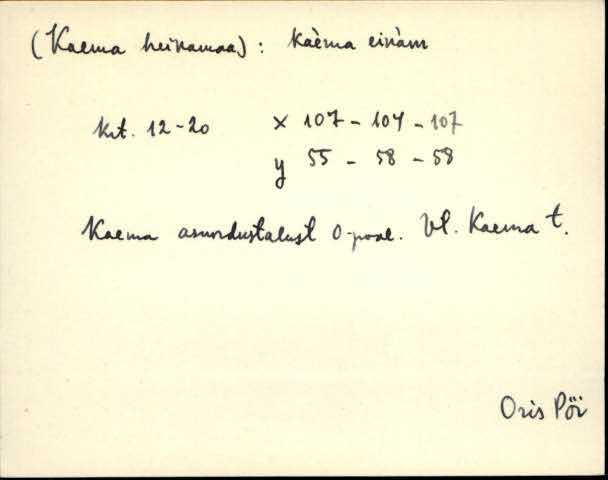 (Kaema heinamaa): kàèma einàm
krt. 12-20 x 107 - 104 - 107
y 55 - 58 - 58
Kaema asundustalust O-pool. Vt. Kaema t.
Oris Pöi